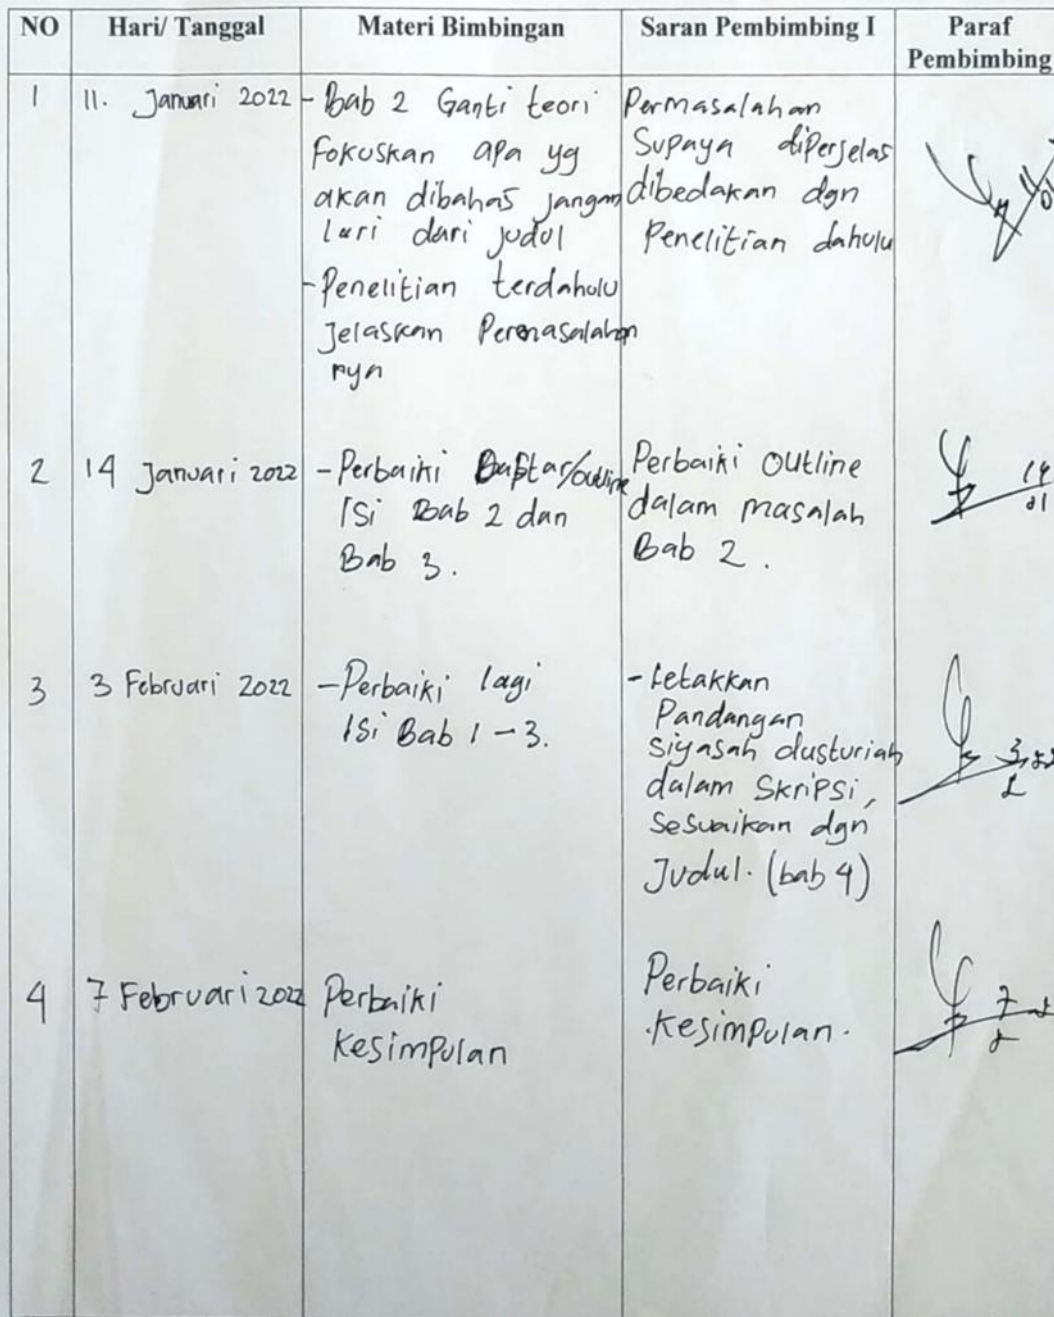 NO Hari/ Tanggal Materi Bimbingan Saran Pembimbing I Paraf Pembimbing
1 11. Januari 2022
- Bab 2 Ganti teori
fokuskan apa yg
akan dibahas jangan
lari dari judul
- Penelitian terdahulu
Jelaskan Permasalahan
nya
Permasalahan
Supaya diperjelas
dibedakan dgn
Penelitian dahulu
2 14 Januari 2022
- Perbaiki Daftar/outline
Isi Bab 2 dan
Bab 3.
Perbaiki Outline
dalam masalah
Bab 2.
14
01
3 3 Februari 2022
- Perbaiki lagi
Isi Bab 1 - 3.
- Letakkan
Pandangan
siyasah dusturiah
dalam Skripsi,
Sesuaikan dgn
Judul. (bab 4)
3
4 7 Februari 2022
Perbaiki
Kesimpulan
Perbaiki
.Kesimpulan.
7